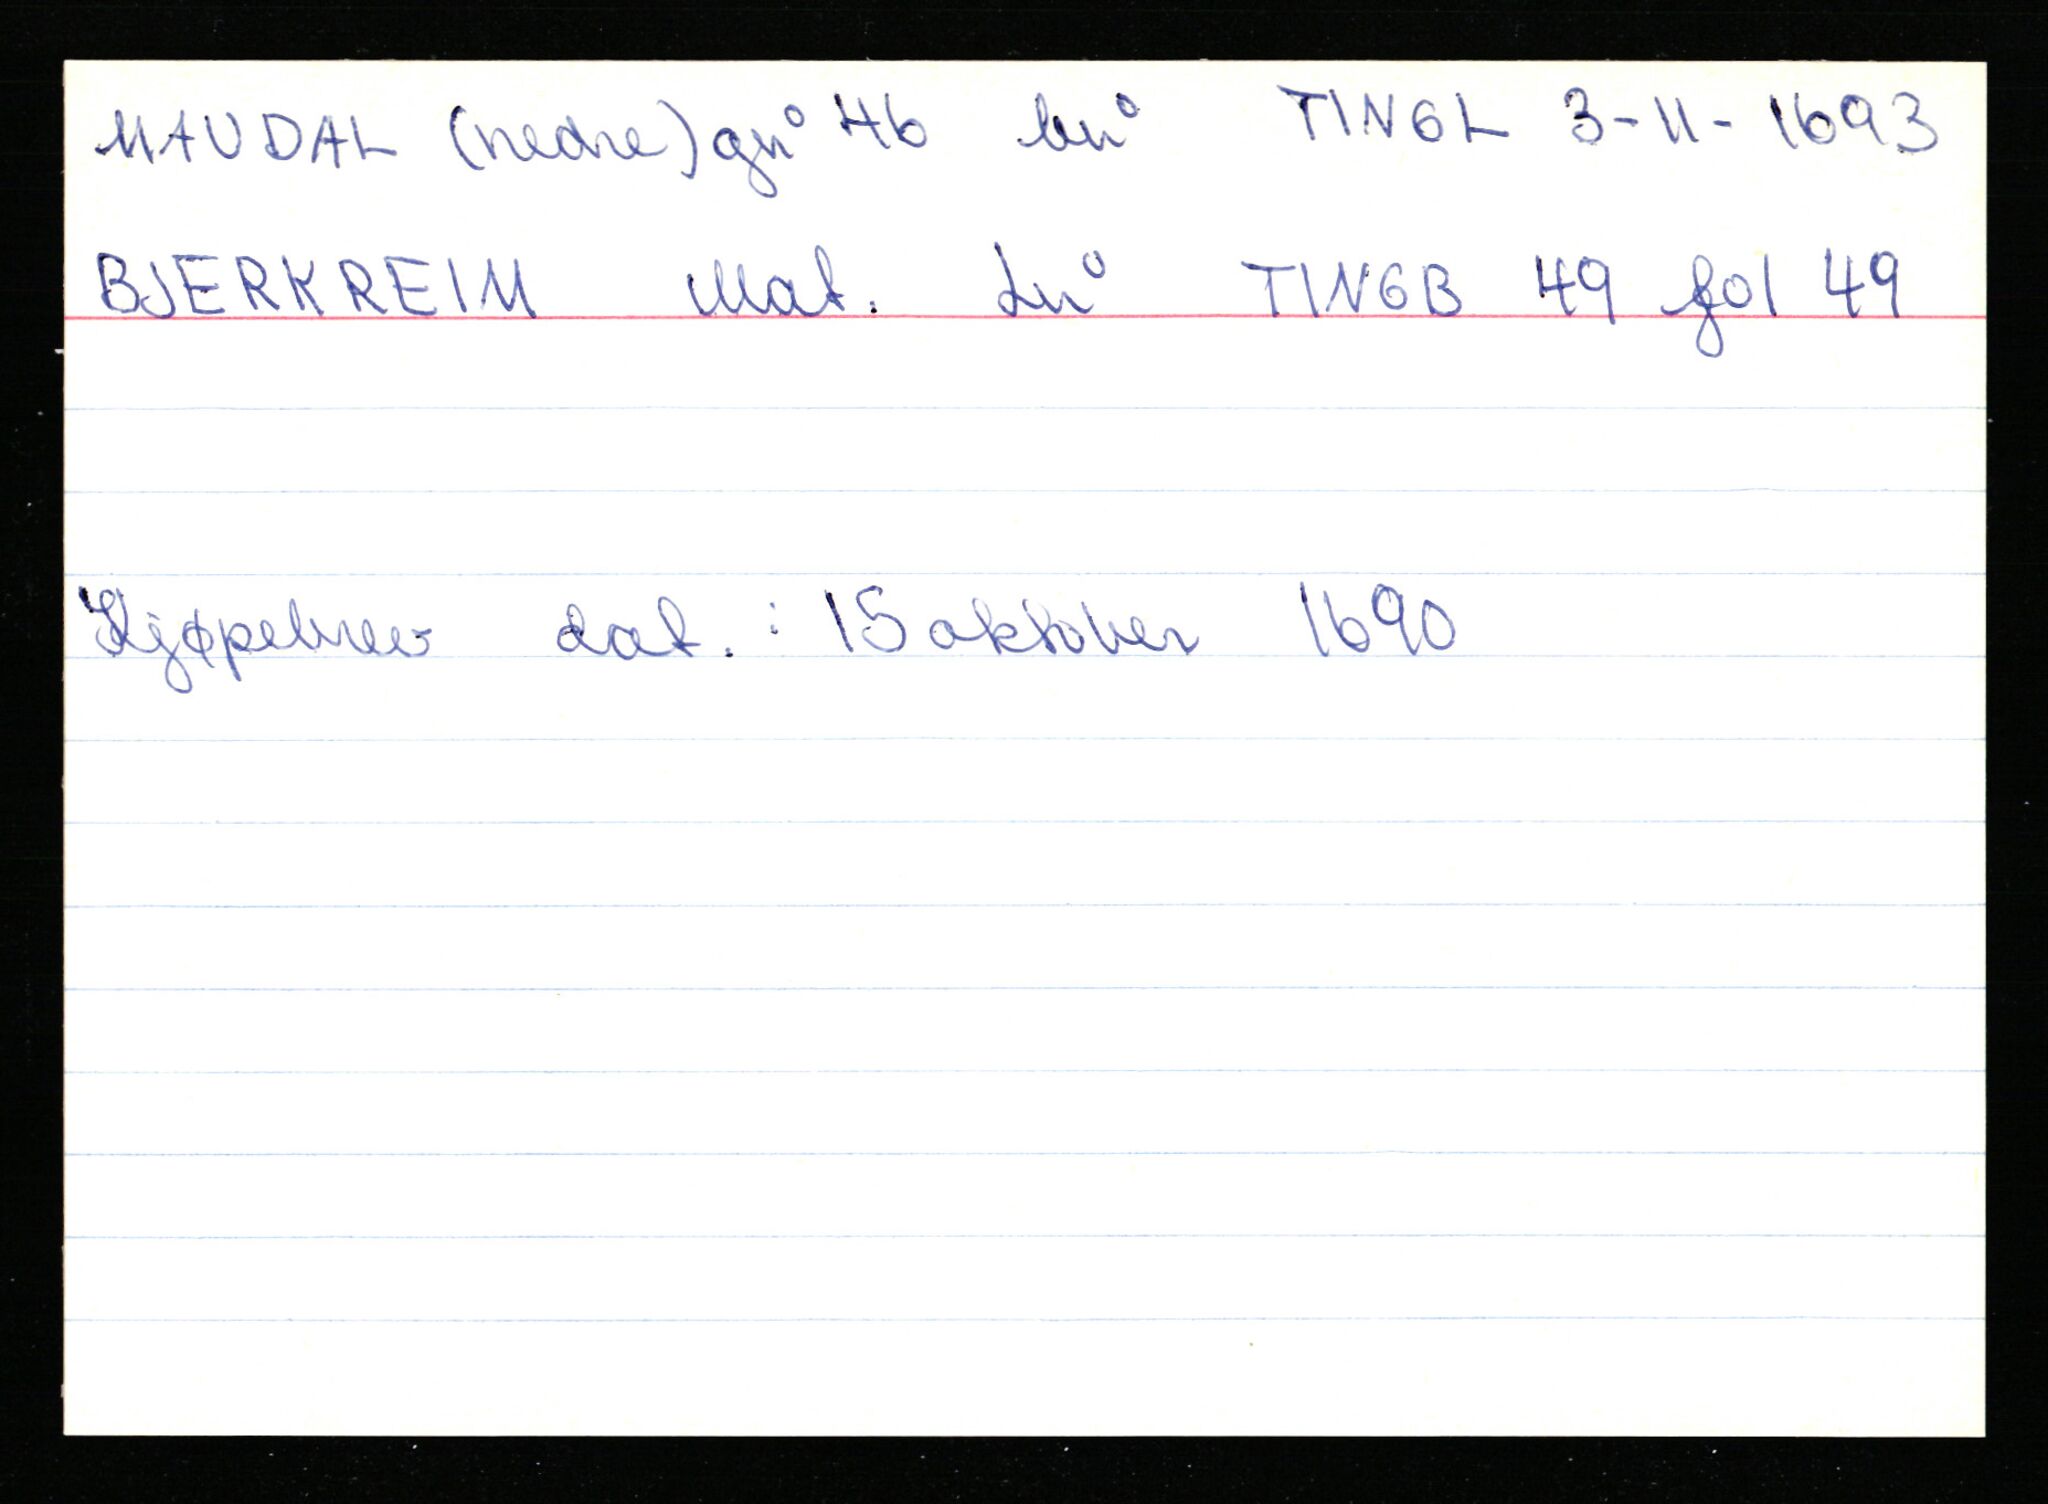 MAUDAL (nedre) gnº 46 bnº TINGL 3-11-1693
BJERKREIM Mat. Lnº TINGB 49 fol 49
Kjøpebrev dat. : 15 oktober 1690